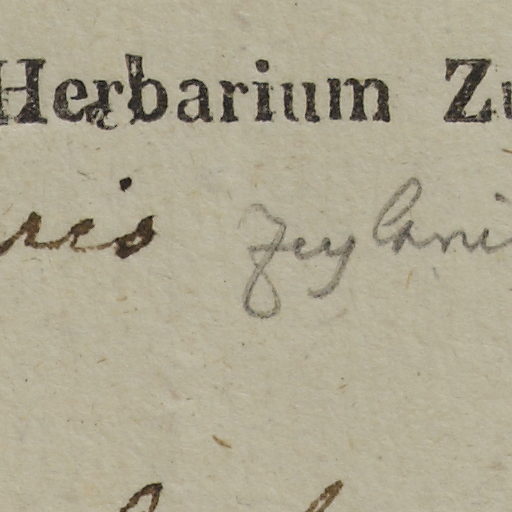 Herbarium Zu
ris zeylani